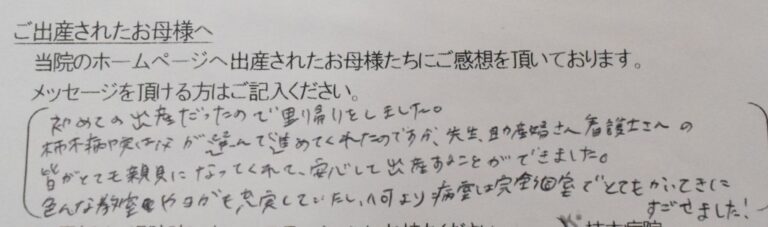 ご出産されたお母様へ
当院のホームページへ出産されたお母様たちにご感想を頂いております。
メッセージを頂ける方はご記入ください。
初めての出産だったので里帰りをしました。
柿木病院は父が選んで進めてくれたのですが、先生、助産婦さん 看護士さんの
皆がとても親身になってくれて、安心して出産することができました。
色んな教室やヨガも充実していたし、何より病室は完全個室でとてもかいてきに
すごせました!
柿木病院